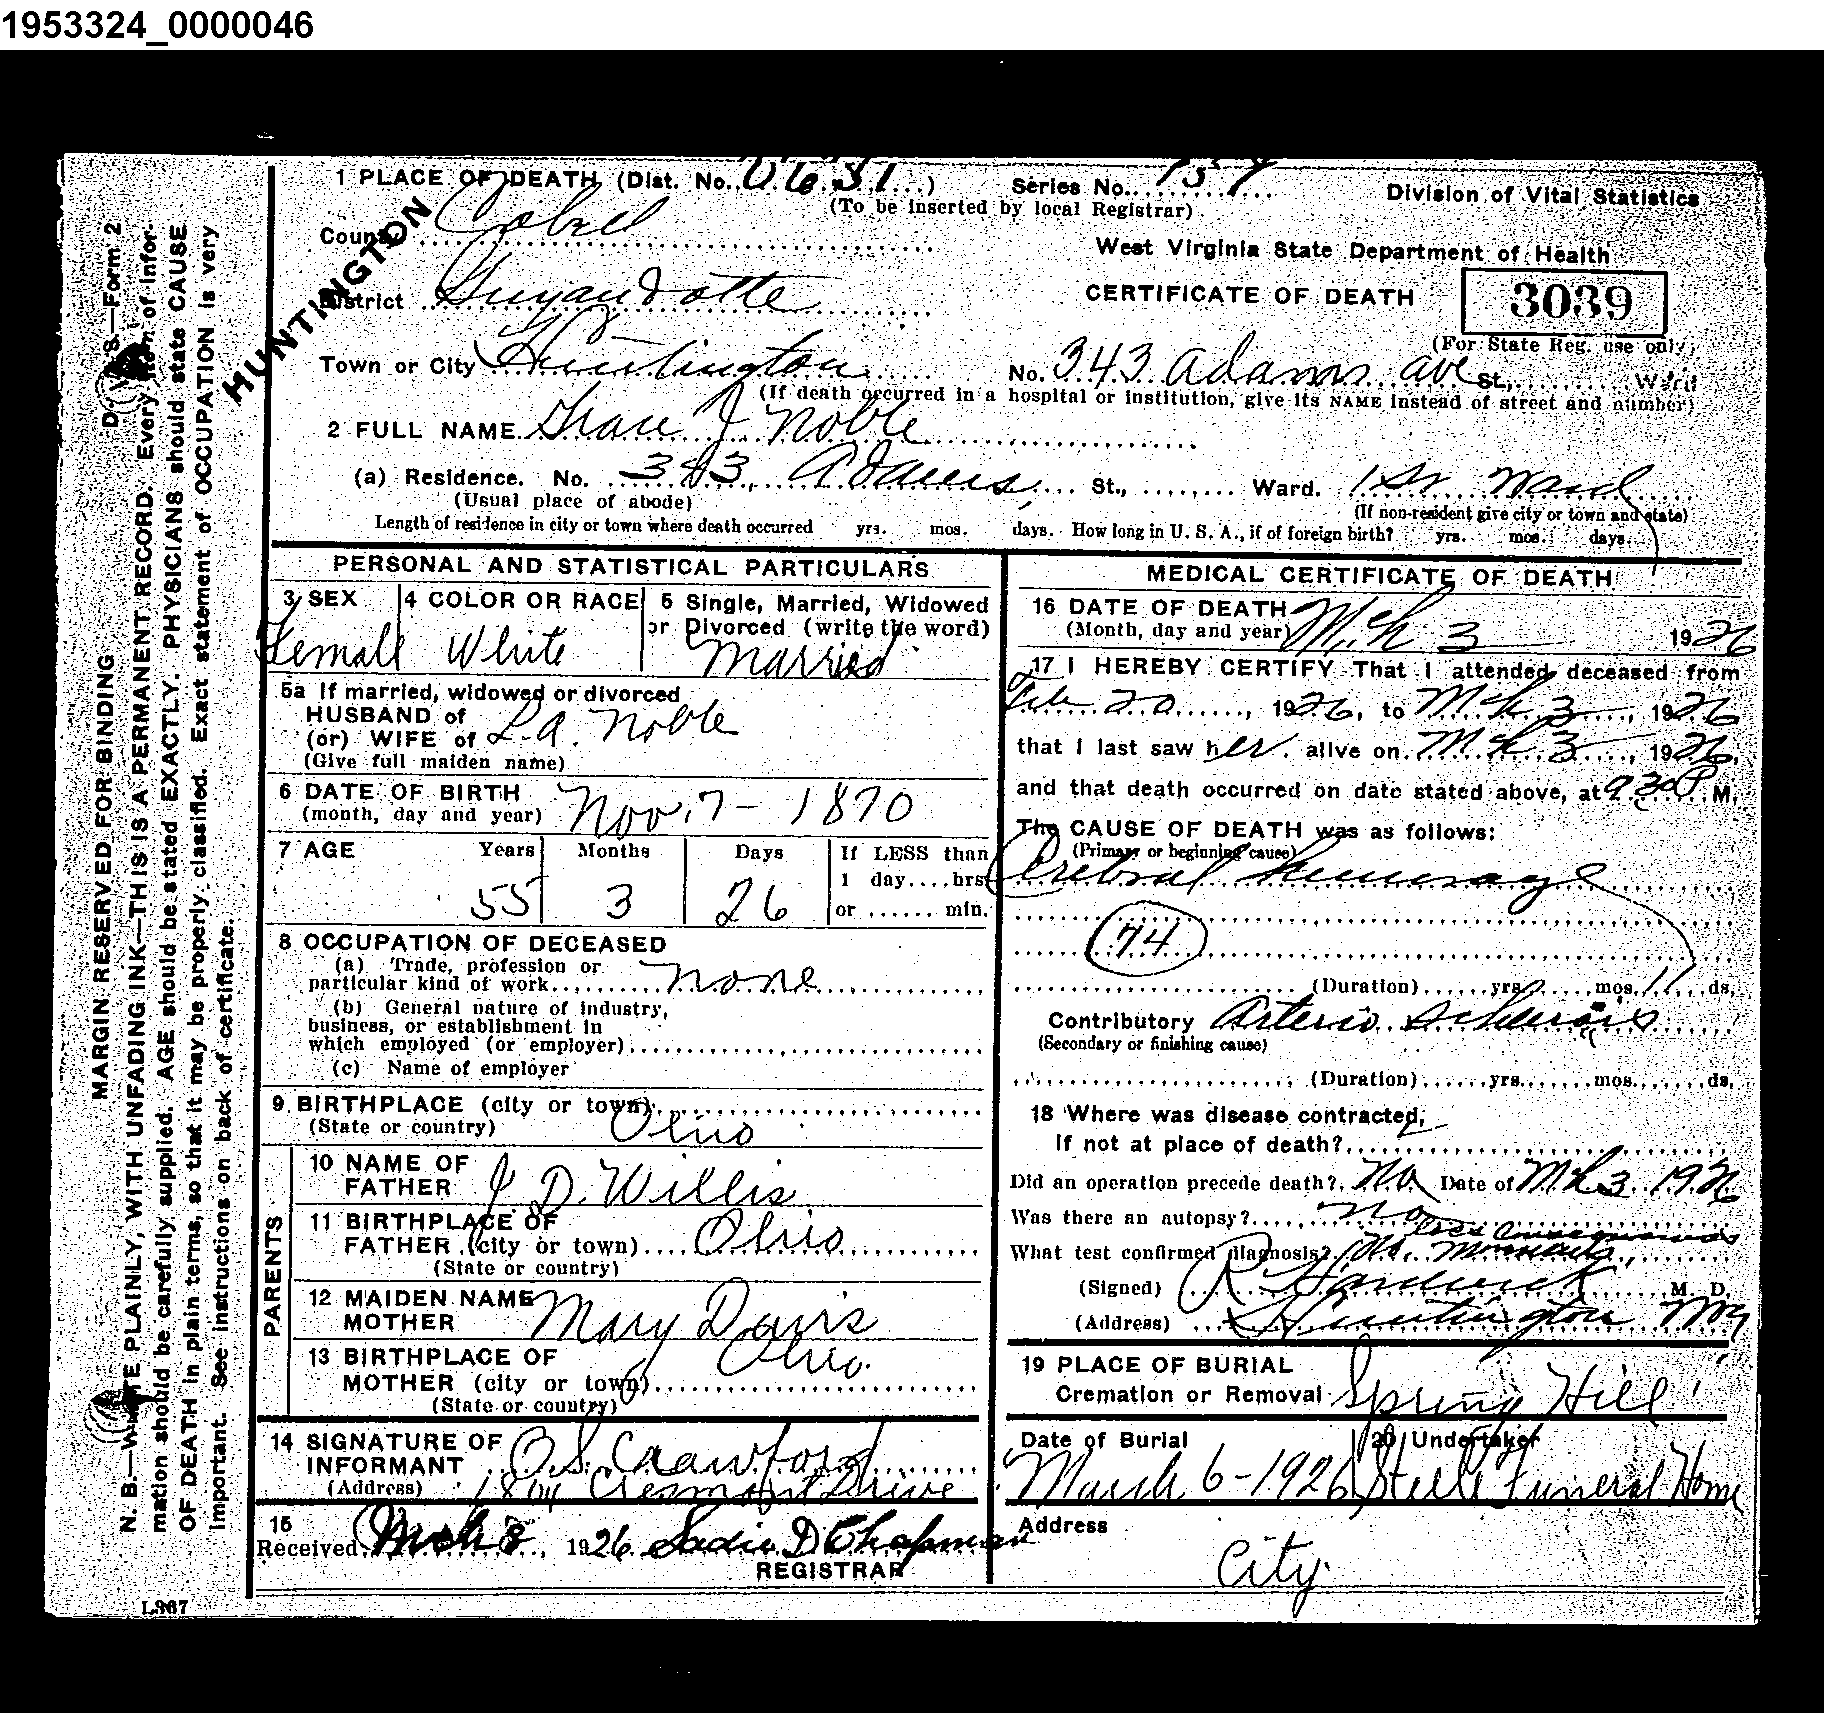 1953324_0000046
1 PLACE OF DEATH (Dist. No. 0631) Series No. Division of Vital Statistics
(To be inserted by local Registrar)
County Cabell
West Virginia State Department of Health
HUNTINGTON
District Guyandotte CERTIFICATE OF DEATH 3039
(For State Reg. use only)
Town or City Huntington No. 343 Adams ave St., Ward
(If death occurred in a hospital or institution, give its NAME instead of street and number)
2 FULL NAME J Noble
(a) Residence. No. 343, Adams St., Ward. 1st Ward
(Usual place of abode) (If non-resident give city or town and state)
Length of residence in city or town where death occurred yrs. mos. days. How long in U. S. A., if of foreign birth? yrs. mos. days.
PERSONAL AND STATISTICAL PARTICULARS
3 SEX 4 COLOR OR RACE 5 Single, Married, Widowed
or Divorced (write the word)
Female White Married
5a If married, widowed or divorced
HUSBAND of
(or) WIFE of L.A. Noble
(Give full maiden name)
6 DATE OF BIRTH
(month, day and year) Nov. 7 - 1870
7 AGE Years Months Days If LESS than
1 day....hrs
55 3 26 or ...... min.
8 OCCUPATION OF DECEASED
(a) Trade, profession or
particular kind of work none
(b) General nature of industry,
business, or establishment in
which employed (or employer)
(c) Name of employer
9 BIRTHPLACE (city or town)
(State or country) Ohio
PARENTS
10 NAME OF
FATHER J D. Willis
11 BIRTHPLACE OF
FATHER (city or town) Ohio
(State or country)
12 MAIDEN NAME
MOTHER Mary Davis
13 BIRTHPLACE OF
MOTHER (city or town) Ohio
(State or country)
14 SIGNATURE OF
INFORMANT O.S. Crawford
(Address) Drive
15
Received Mch 8, 1926 Sadie D Chapman
REGISTRAR
MEDICAL CERTIFICATE OF DEATH
16 DATE OF DEATH
(Month, day and year) Mch 3 1926
17 I HEREBY CERTIFY That I attended deceased from
Feb 20, 1926, to Mch 3, 1926
that I last saw her alive on Mch 3, 1926,
and that death occurred on date stated above, at 9 30 P M.
The CAUSE OF DEATH was as follows:
(Primary or beginning cause)
Cerebral hemorage
74
(Duration) yrs. mos. 11 ds.
Contributory Arterio
(Secondary or finishing cause)
(Duration) yrs. mos. ds.
18 Where was disease contracted,
if not at place of death?
Did an operation precede death? No Date of Mch 3 1926
Was there an autopsy? no
What test confirmed diagnosis?
(Signed) R Hardwick M. D.
(Address) Huntington
19 PLACE OF BURIAL
Cremation or Removal Spring Hill
Date of Burial 20 Undertaker
March 6 - 1926 Funeral Home
Address
City
MARGIN RESERVED FOR BINDING
N. B.—WRITE PLAINLY, WITH UNFADING INK—THIS IS A PERMANENT RECORD. Every item of infor-
mation should be carefully supplied. AGE should be stated EXACTLY. PHYSICIANS should state CAUSE
OF DEATH in plain terms, so that it may be properly classified. Exact statement of OCCUPATION is very
important. See instructions on back of certificate.
S.—Form 2
L367